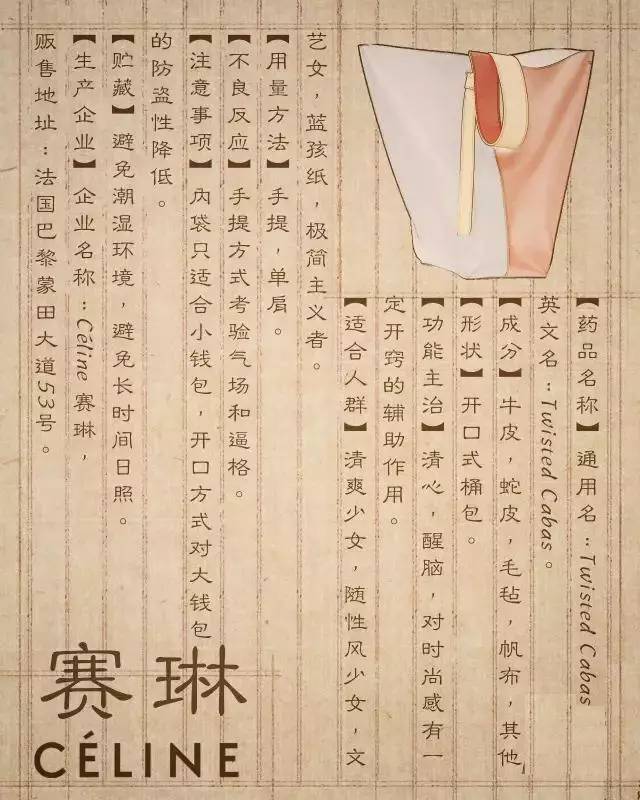 【药品名称】通用名：Twisted Cabas
英文名：Twisted Cabas。
【成分】牛皮，蛇皮，毛毡，帆布，其他
【形状】开口式桶包。
【功能主治】清心，醒脑，对时尚感有一
定开窍的辅助作用。
【适合人群】清爽少女，随性风少女，文
艺女，蓝孩纸，极简主义者。
【用量方法】手提，单肩。
【不良反应】手提方式考验气场和逼格。
【注意事项】内袋只适合小钱包，开口方式对大钱包
的防盗性降低。
【贮藏】避免潮湿环境，避免长时间日照。
【生产企业】企业名称：Céline 赛琳，
贩售地址：法国巴黎蒙田大道53号。
赛琳
CÉLINE